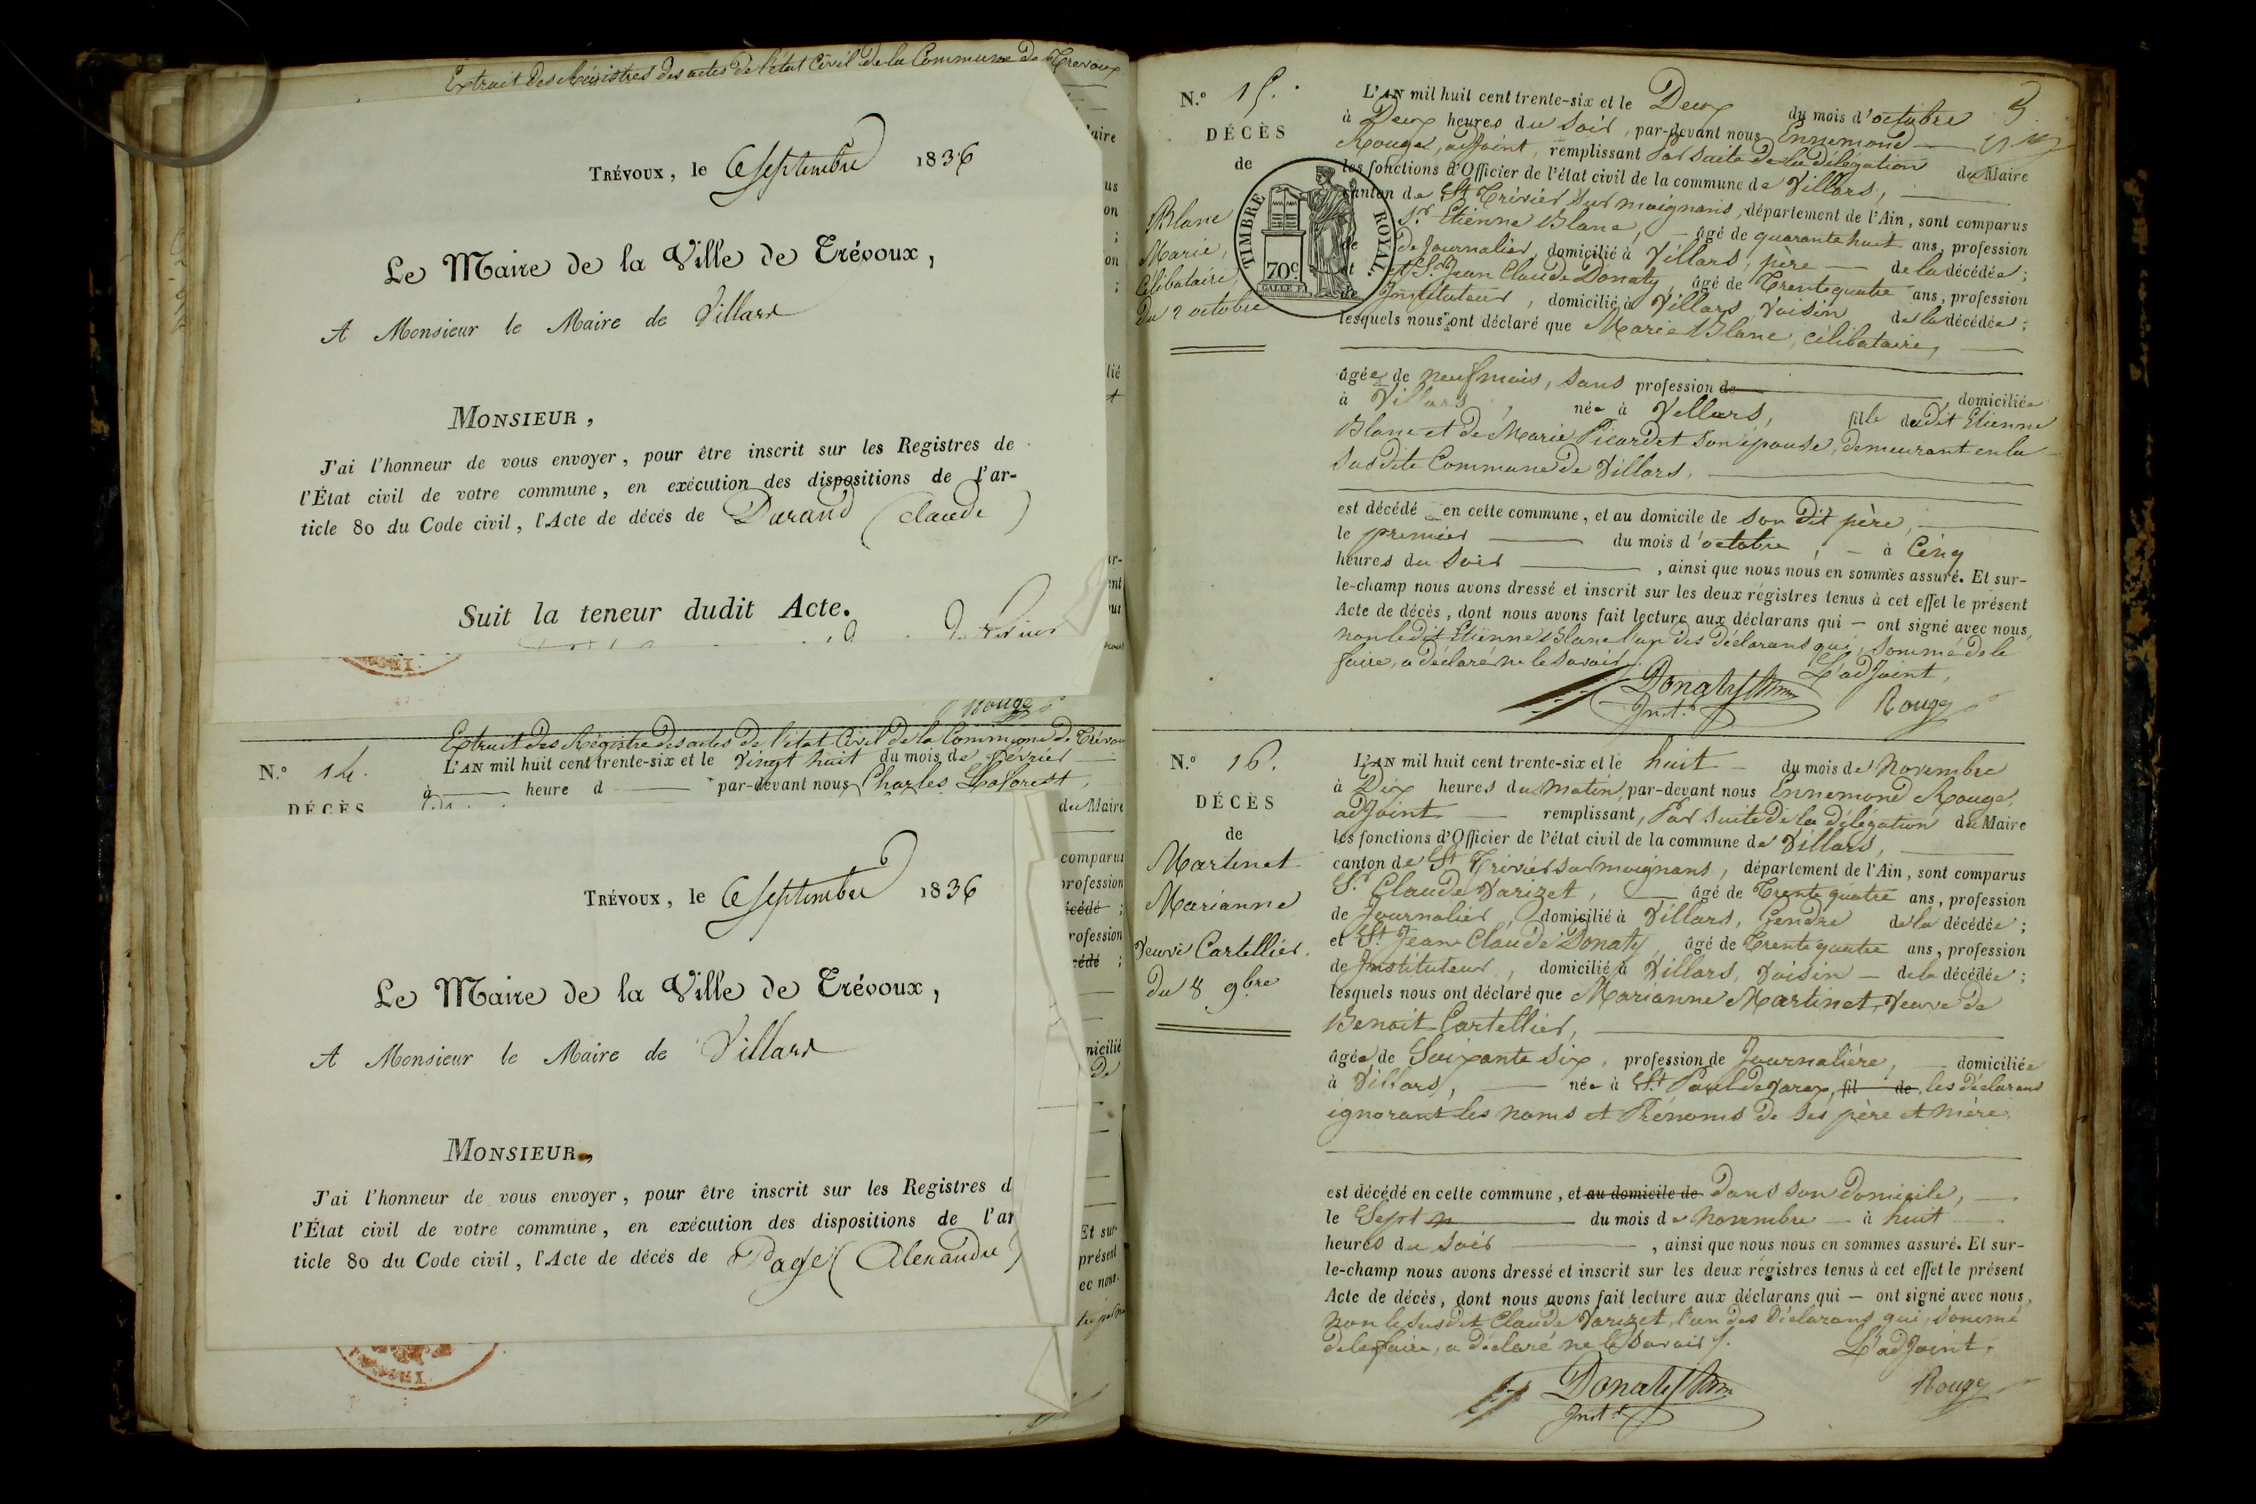 Extrait des Régistres des actes de l'état Civil de la Commune de Trevoux
TRÉVOUX, le 6 Septembre 1836
Le Maire de la Ville de Trévoux,
A Monsieur le Maire de Villars
MONSIEUR,
J'ai l'honneur de vous envoyer, pour être inscrit sur les Registres de
l'État civil de votre commune, en exécution des dispositions de l'ar-
ticle 80 du Code civil, l'Acte de décés de Durand (Claude)
Suit la teneur dudit Acte.
Rouge
Extrait des Régistre des actes de l'état Civil de la Commune de Trévou
N.º 14. L'AN mil huit cent trente-six et le Vingt huit du mois de Février
à heure d par-devant nous Charles Laforest,
DÉCÈS
du Maire
comparus
profession
écédé ;
rofession
cédé ;
micilié
de
Et sur-
présent
ec nous.
TRÉVOUX, le 6 Septembre 1836
Le Maire de la Ville de Trévoux,
A Monsieur le Maire de Villars
MONSIEUR,
J'ai l'honneur de vous envoyer, pour être inscrit sur les Registres d
l'État civil de votre commune, en exécution des dispositions de l'ar
ticle 80 du Code civil, l'Acte de décés de Page (Alexandre)
N.º 15.
DÉCÈS
de
Blanc
Marie,
Célibataire,
Du 2 octobre
TIMBRE ROYAL.
70c
L'AN mil huit cent trente-six et le Deux du mois d'octobre
à Deux heures du soir, par-devant nous Ennemond
Rouge, adjoint, remplissant Par suite de la délégation du Maire
les fonctions d'Officier de l'état civil de la commune de Villars,
canton de St Trivier sur moignans, département de l'Ain, sont comparus
Sr Etienne Blanc, âgé de quarante huit ans, profession
de Journalier, domicilié à Villars, père de la décédée;
et Sr Jean Claude Donaty, âgé de Trente quatre ans, profession
de Instituteur, domicilié à Villars, Voisin de la décédée;
lesquels nous ont déclaré que Marie Blanc, célibataire,
âgée de neuf mois, sans profession de domiciliée
à Villars, née à Villars, fille dudit Etienne
Blanc et de Marie Picardet son épouse, demeurant en la
susdite Commune de Villars.
est décédé en cette commune, et au domicile de son dit père,
le premier du mois d'octobre, à Cinq
heures du Soir, ainsi que nous nous en sommes assuré. Et sur-
le-champ nous avons dressé et inscrit sur les deux régistres tenus à cet effet le présent
Acte de décès, dont nous avons fait lecture aux déclarans qui — ont signé avec nous,
non ledit Etienne Blanc l'un des déclarans qui, sommé de le
faire, a déclaré ne le savoir.
L'adjoint,
Donaty
Inst.r
Rouge
N.º 16.
DÉCÈS
de
Martinet
Marianne
Veuve Cartellier.
du 8 9bre
L'AN mil huit cent trente-six et le huit du mois de Novembre
à Dix heures du matin, par-devant nous Ennemond Rouge,
adjoint remplissant, Par suite de la délégation du Maire
les fonctions d'Officier de l'état civil de la commune de Villars,
canton de St Trivier sur moignans, département de l'Ain, sont comparus
Sr Claude Varizet, âgé de Trente quatre ans, profession
de Journalier, domicilié à Villars, Gendre de la décédée;
et Sr Jean Claude Donaty, âgé de Trente quatre ans, profession
de Instituteur, domicilié à Villars, Voisin — de la décédée;
lesquels nous ont déclaré que Marianne Martinet, Veuve de
Benoit Cartellier,
âgée de Soixante Six, profession de Journalière, domiciliée
à Villars, née à St Paul de Varax, fil de les déclarans
ignorant les noms et Prénoms de ses père et mère.
est décédé en cette commune, et au domicile de dans son domicile,
le Sept du mois de Novembre — à huit
heures du Soir, ainsi que nous nous en sommes assuré. Et sur-
le-champ nous avons dressé et inscrit sur les deux régistres tenus à cet effet le présent
Acte de décès, dont nous avons fait lecture aux déclarans qui — ont signé avec nous,
non le susdit Claude Varizet, l'un des Déclarans qui, sommé
de le faire, a déclaré ne le savoir.
L'adjoint,
Donaty
Inst.r
Rouge